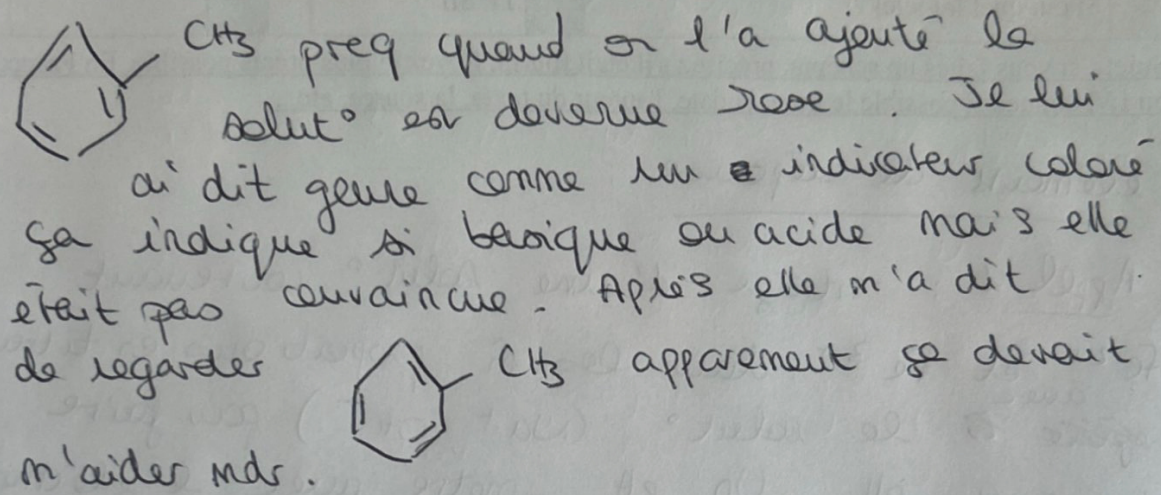 CH3 preq quand on l'a ajouté la
solut° est devenue rose. Je lui
ai dit genre comme un indicateur coloré
ça indique si basique ou acide mais elle
était pas convaincue. Après elle m'a dit
de regarder CH3 apparement ça devait
m'aider mdr.